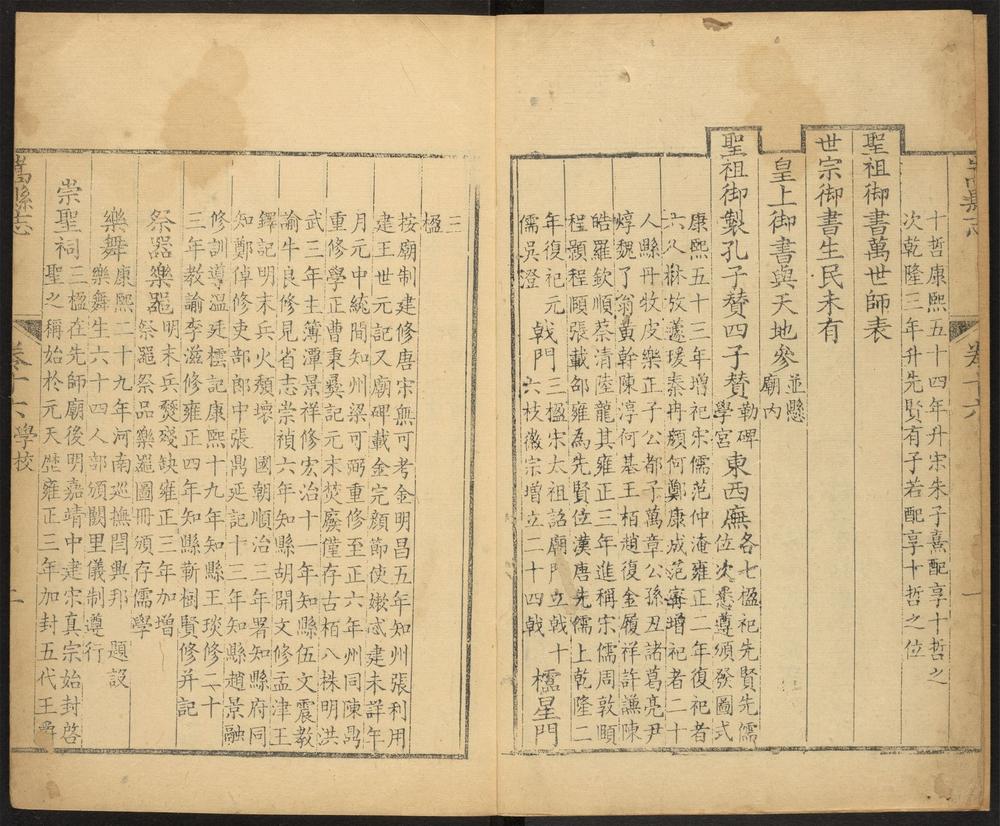 嵩縣志
卷十六
一
十哲康熙五十四年升宋朱子熹配享十哲之
次乾隆三年升先賢有子若配享十哲之位
聖祖御書萬世師表
世宗御書生民未有
皇上御書與天地參並懸
廟內
聖祖御製孔子贊四子贊勒碑
學宮東西廡各七楹祀先賢先儒
位次悉遵頒發圖式
康熙五十三年增祀宋儒范仲淹雍正二年復祀者
六人林放蘧瑗秦冉顏何鄭康成范甯增祀者二十
人縣亶牧皮樂正子公都子萬章公孫丑諸葛亮尹
焞魏了翁黃幹陳淳何基王栢趙復金履祥許謙陳
澔羅欽順蔡清陸隴其雍正三年進稱宋儒周敦頤
程顥程頤張載邵雍為先賢位漢唐先儒上乾隆二
年復祀元戟門三楹宋太祖詔廟門立戟十
儒吳澄六枝徽宗增立二十四戟櫺星門
三
楹
按廟制建修唐宋無可考金明昌五年知州張利用
建王世元記又廟碑載金完顏節使嫩忒建未詳年
月元中統間知州梁可弼重修至正六年州同陳鼎
重修學正曹秉彝記元末焚廢僅存古栢八株明洪
武三年主簿潭景祥修宏治十一年知縣伍文震教
諭牛良修見省志崇禎六年知縣胡開文修孟津王
鐸記明末兵火頹壞 國朝順治三年署知縣府同
知鄭倬修吏部郎中張鼎延記十三年知縣趙景融
修訓導溫延櫺記康熙十九年知縣王琰修二十
三年教諭李滋修雍正四年知縣靳樹賢修并記
祭器樂器明末兵燹殘缺雍正三年加增
祭噐祭品樂噐圖冊頒存儒學
樂舞康熙二十九年河南巡撫閆興邦 題設
樂舞生六十四人部頒闕里儀制遵行
崇聖祠三楹在先師廟後明嘉靖中建宋真宗始封啓
聖之稱始於元天歷雍正三年加封五代王爵
嵩縣志
卷十六 學校
二